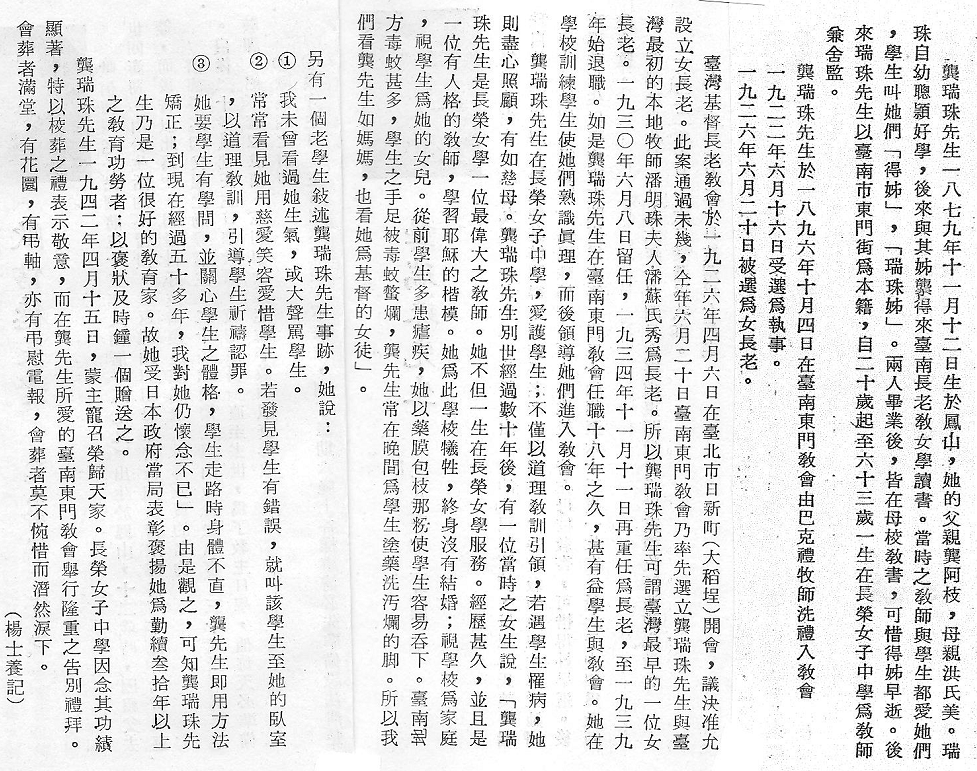 龔瑞珠先生一八七九年十一月十二日生於鳳山，她的父親龔阿枝，母親洪氏美。瑞
珠自幼聰頴好學，後來與其姊龔得來臺南長老敎女學讀書。當時之敎師與學生都愛她們
，學生叫她們「得姊」，「瑞珠姊」。兩人畢業後，皆在母校敎書，可惜得姊早逝。後
來瑞珠先生以臺南市東門街爲本籍，自二十歲起至六十三歲一生在長榮女子中學爲敎師
兼舍監。
龔瑞珠先生於一八九六年十月四日在臺南東門敎會由巴克禮牧師洗禮入敎會
一九二二年六月十六日受選爲執事。
一九二六年六月二十日被選爲女長老。
臺灣基督長老敎會於一九二六年四月六日在臺北市日新町（大稻埕）開會，議決准允
設立女長老。此案通過未幾，仝年六月二十日臺南東門敎會乃率先選立龔瑞珠先生與臺
灣最初的本地牧師潘明珠夫人潘蘇氏秀爲長老。所以龔瑞珠先生可謂臺灣最早的一位女
長老。一九三〇年六月八日留任，一九三四年十一月十一日再重任爲長老，至一九三九
年始退職。如是龔瑞珠先生在臺南東門敎會任職十八年之久，甚有益學生與敎會。她在
學校訓練學生使她們熟識眞理，而後領導她們進入敎會。
龔瑞珠先生在長榮女子中學，愛護學生；不僅以道理敎訓引領，若遇學生罹病，她
則盡心照顧，有如慈母。龔瑞珠先生別世經過數十年後，有一位當時之女生說，「龔瑞
珠先生是長榮女學一位最偉大之敎師。她不但一生在長榮女學服務。經歷甚久，並且是
一位有人格的敎師，學習耶穌的楷模。她爲此學校犧牲，終身沒有結婚；視學校爲家庭
，視學生爲她的女兒。從前學生多患瘧疾，她以藥膜包枝那粉使學生容易吞下。臺南地
方毒蚊甚多，學生之手足被毒蚊螫爛，龔先生常在晚間爲學生塗藥洗汚爛的脚。所以我
們看龔先生如媽媽，也看她爲基督的女徒」。
另有一個老學生敍述龔瑞珠先生事跡，她說：
① 我未曾看過她生氣，或大聲罵學生。
② 常常看見她用慈愛笑容愛惜學生。若發見學生有錯誤，就叫該學生至她的臥室
，以道理敎訓，引導學生祈禱認罪。
③ 她要學生有學問，並關心學生之體格，學生走路時身體不直，龔先生即用方法
矯正；到現在經過五十多年，我對她仍懷念不已」。由是觀之，可知龔瑞珠先
生乃是一位很好的敎育家。故她受日本政府當局表彰褒揚她爲勤續叁拾年以上
之敎育功勞者；以褒狀及時鐘一個贈送之。
龔瑞珠先生一九四二年四月十五日，蒙主寵召榮歸天家。長榮女子中學因念其功績
顯著，特以校葬之禮表示敬意，而在龔先生所愛的臺南東門敎會舉行隆重之告別禮拜。
會葬者滿堂，有花圜，有弔軸，亦有弔慰電報，會葬者莫不惋惜而潛然淚下。
（楊士養記）